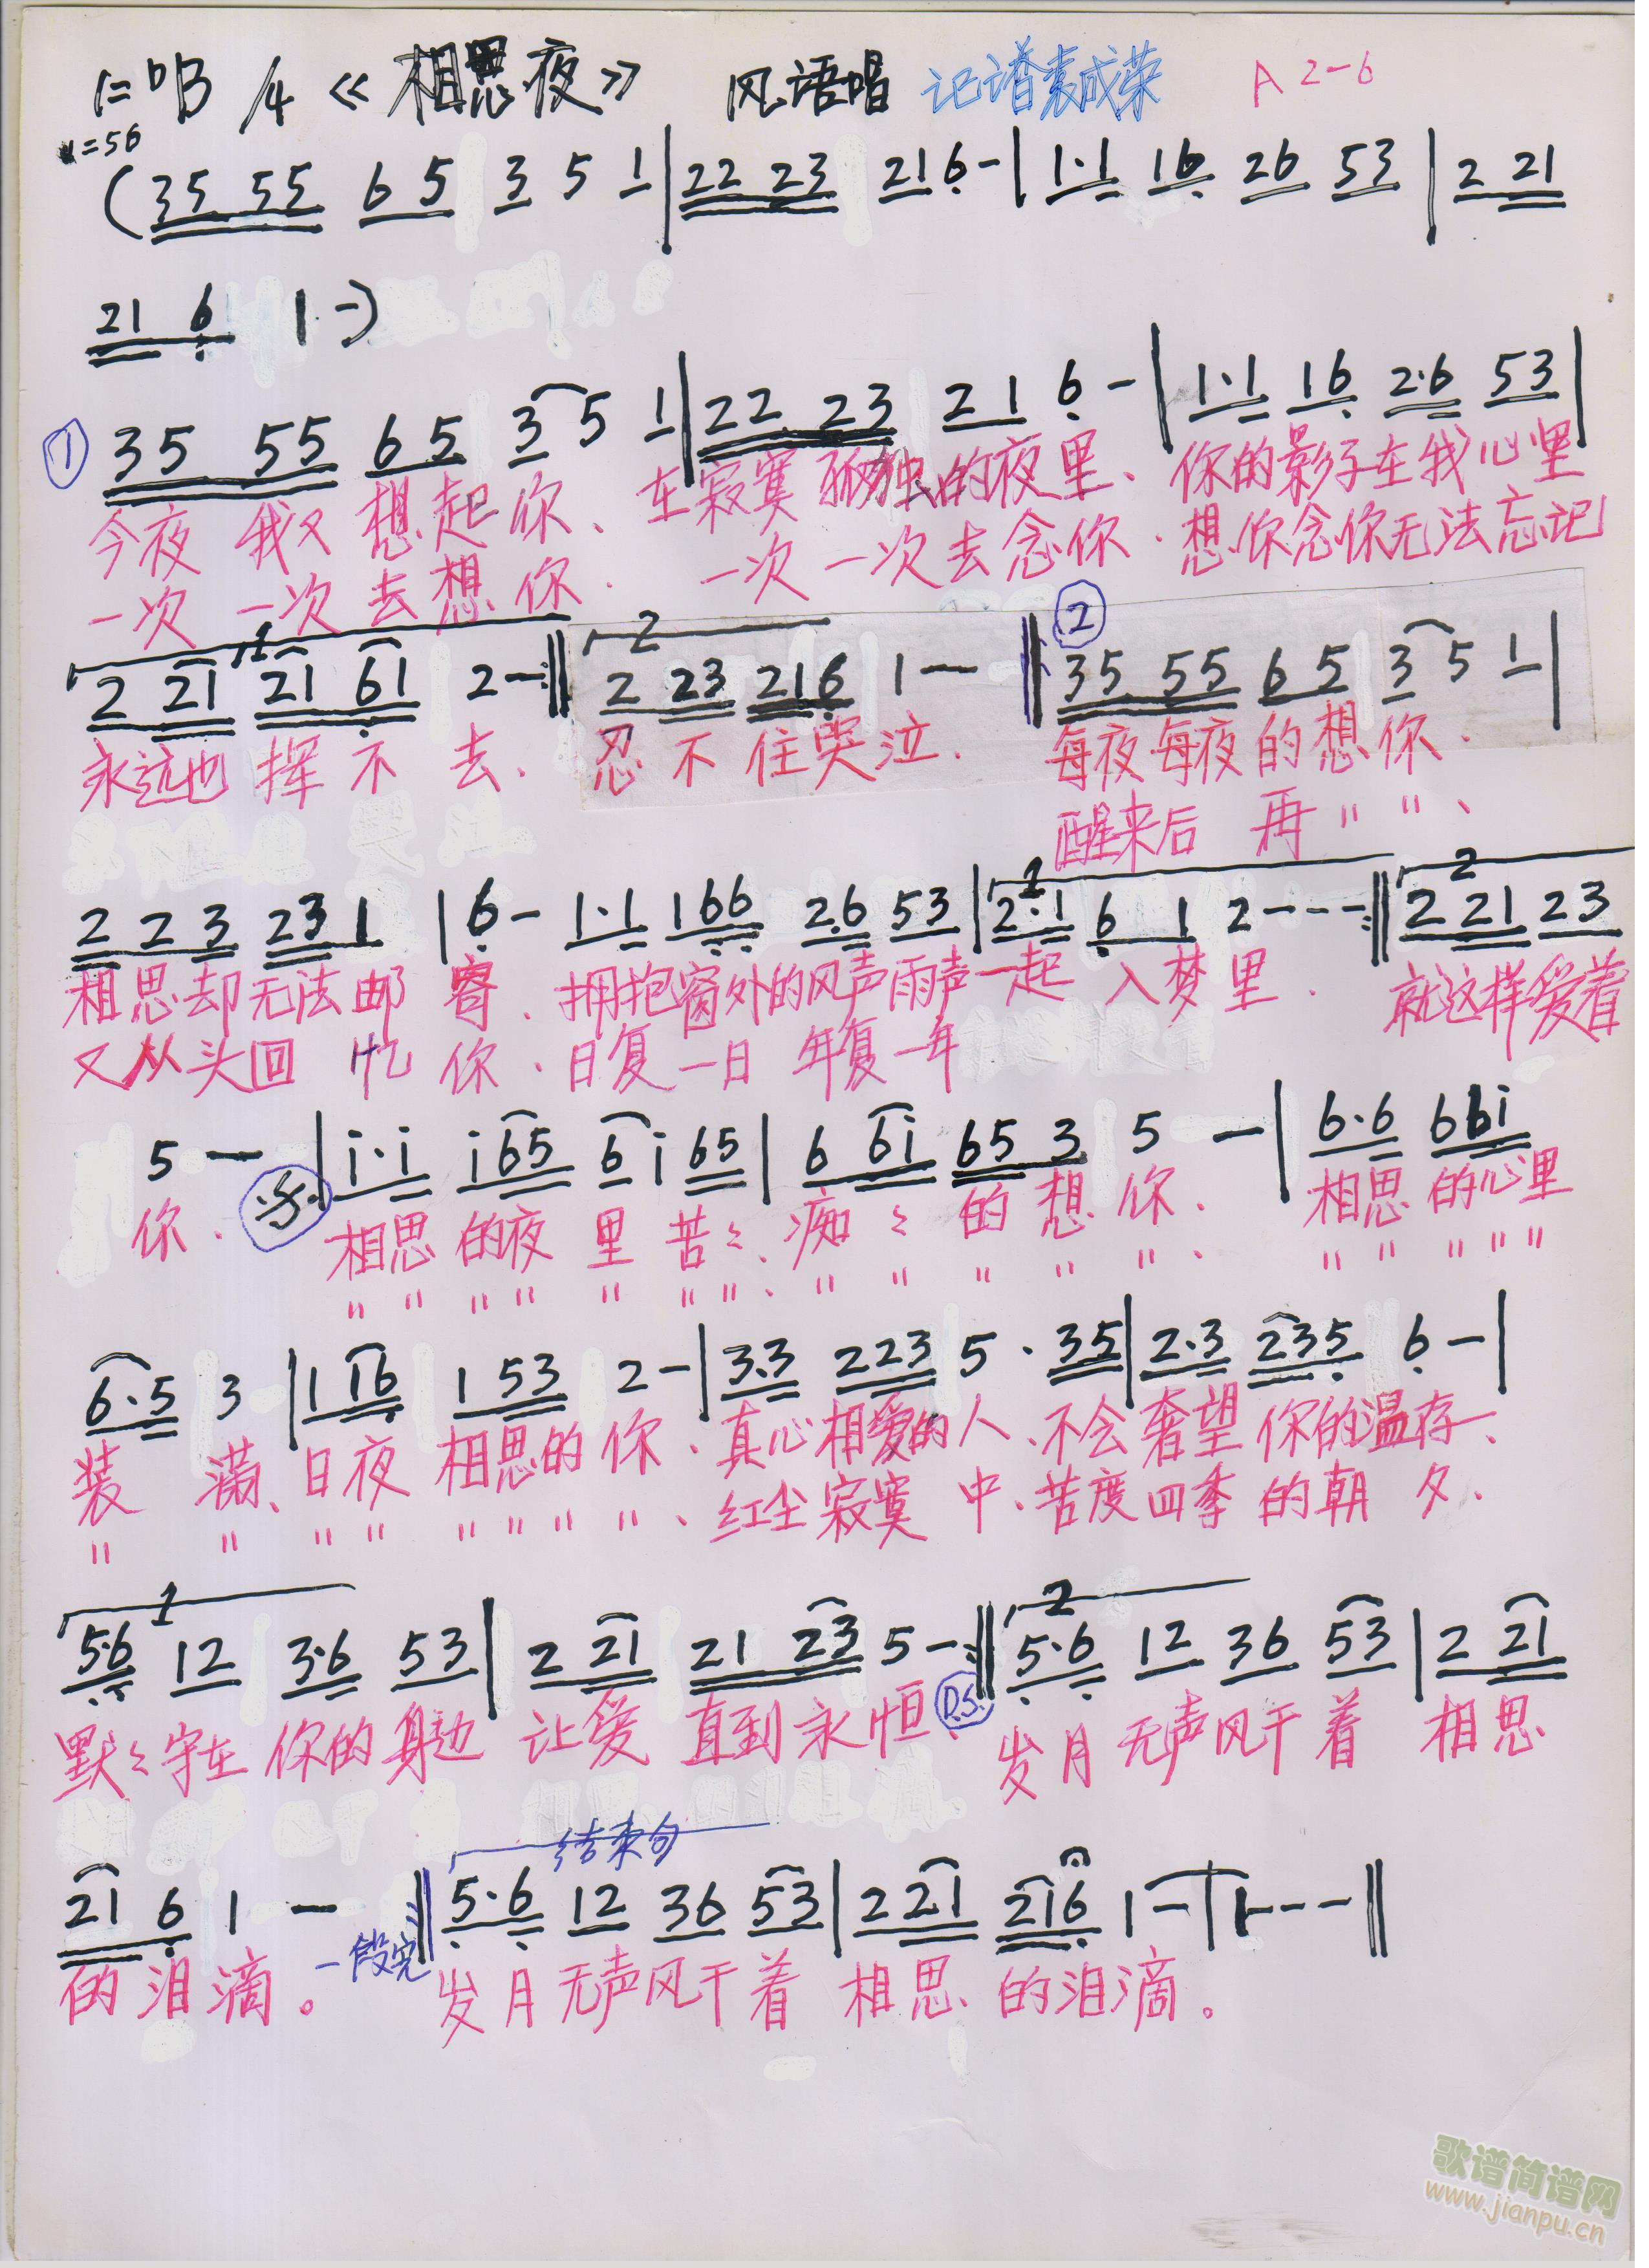 1=bB /4 《相思夜》 风语唱 记谱袁成荣 A 2-6
=56
(35 55 6 5 3 5 1|22 23 216-|1·1 16 26 53|2 21
21 6 1 -)
① 35 55 6 5 3 5 1|22 23 2 1 6 -|1·1 16 2·6 53|
今夜 我又 想起你、在寂寞孤独的夜里、你的影子在我心里
一次 一次去想你. 一次一次去念你.想你念你无法忘记
1 2 ②
2 21 21 61 2-:‖2 23 216 1 — ‖35 55 6 5 3 5 1|
永远也 挥 不 去、忍 不 住哭泣. 每夜每夜的想你.
醒来后 再 " " 、
1 2
2 2 3 23 1 |6 - 1·1 166 2·6 53|2·1 6 1 2---:‖2 21 23
相思却无法邮 寄、拥抱窗外的风声雨声一起 入梦里. 就这样爱着
又从头回 忆 你、日复一日 年复一年
5 — |i·i i65 6i 65|6 6i 65 3 5 —|6·6 66i
你. 相思 的夜 里 苦々、痴々 的 想 你. 相思 的心里
" " " " " " "、" " " " "、 " " " " "
6·5 3 |1 16 1 53 2-|3·3 223 5·35|2·3 235 6-|
装 满、日夜 相思的你、真心相爱的人、不会奢望 你的温存、
" " " " " " " "、红尘寂寞 中、苦度四季 的朝 夕、
1 2
5·6 12 3·6 53|2 21 21 23 5-:‖5·6 12 36 53|2 21
默々守在 你的 身边 让爱 直到永恒、 D.S. 岁月无声风干着 相思
结束句
21 6 1 — ‖5·6 12 36 53|2 21 216 1-|1---‖
的泪滴。一段完 岁月无声风干着 相思 的泪滴。
歌谱简谱网
www.jianpu.cn